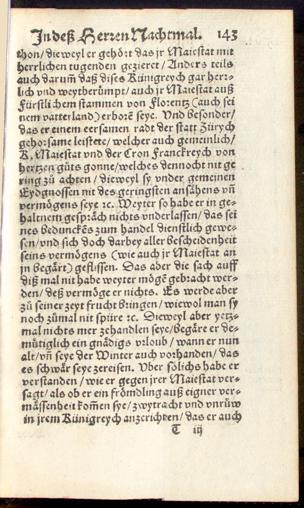 In deß Herren Nachtmal. 143
thon/ dieweyl er gehört das jr Maiestat mit
herrlichen tugenden gezieret/ Anders teils
auch darum̃ daß dises Künigreych gar herz-
lich vnd weytberümpt/ auch jr Maiestat auß
Fürstlichem stammen von Florentz (auch sei
nem vatterland) erboré seye. Vnd besonder/
das er einem eersamen radt der statt Zürych
gehorsame leistete/ welcher auch gemeinlich/
K. Maiestat vnd der Cron Franckreych von
hertzen güts gonne/ welches dennocht nit ge
ring zů achten/ dieweyl sy vnder gemeinen
Eydgnossen nit des geringsten ansähens vñ
vermögens seye ꝛc. Weyter so habe er in ge-
haltnem gespräch nichts vnderlassen/ das sei
nes bedunckẽs zum handel dienstlich gewe-
sen/ vnd sich doch darbey aller bescheidenheit
seins vermögens (wie auch jr Maiestat an
jn begärt) geflissen. Das aber die sach auff
diß mal nit habe weyter mögẽ gebracht wer-
den/ deß vermöge er nichts. Es werde aber
zů seiner zeyt frucht bringen/ wiewol man sy
noch zůmal nit spüre ꝛc. Dieweyl aber yetz-
mal nichts mer zehandlen seye/ begäre er de-
mütigklich ein gnädigs vrloub/ wann er nun
alt/ vñ seye der Winter auch vorhanden/ das
es schwär seye zereisen. Vber sölichs habe er
verstanden/ wie er gegen jrer Maiestat ver-
sagt/ als ob er ein frömdling auß eigner ver-
mässenheit kom̃en sye/ zwytracht vnd vnrůw
in jrem Künigreych anzerichten/ das er auch
T iij